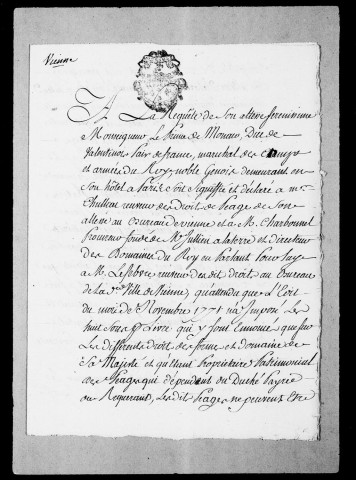 Vienne
A La Requête de Son altesse serenissime
Monseigneur Le Prince de Monaco, Duc de
Valentinois Pair de france, marechal des camps
et armées du Roy, noble Genois demeurant en
son hôtel a Paris soit signiffié et déclaré a mr
Thullan receveur des Droit de Peage de Son
altesse au Bureau de vienne et a M. Charbonnel
Procureur fondé de Mr Jullien alaterre et directeur
des Domaines du Roy en
a M. Lefebvre receveur des dit Droit au Bureau
de la de. Ville de Vienne, qu'attendu que L'Edit
du mois de Novembre 1771 n'a Imposé Les
huit Sous p. Livre qui y sont Ennoncé que sur
Les differents droit de ferme et domaine de
Sa Majesté et qu'étant Proprietaire Patrimonial
des Peages qui dépendent du Duché Payrie
du Requerant, Les dit Peages ne peuvent Etre